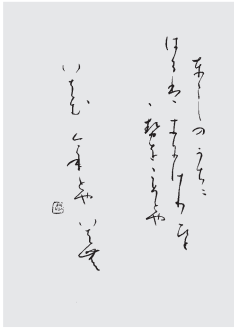 としのうちに
はるはきにけりひと
とせをこそとや
いはむ今年とやいはむ